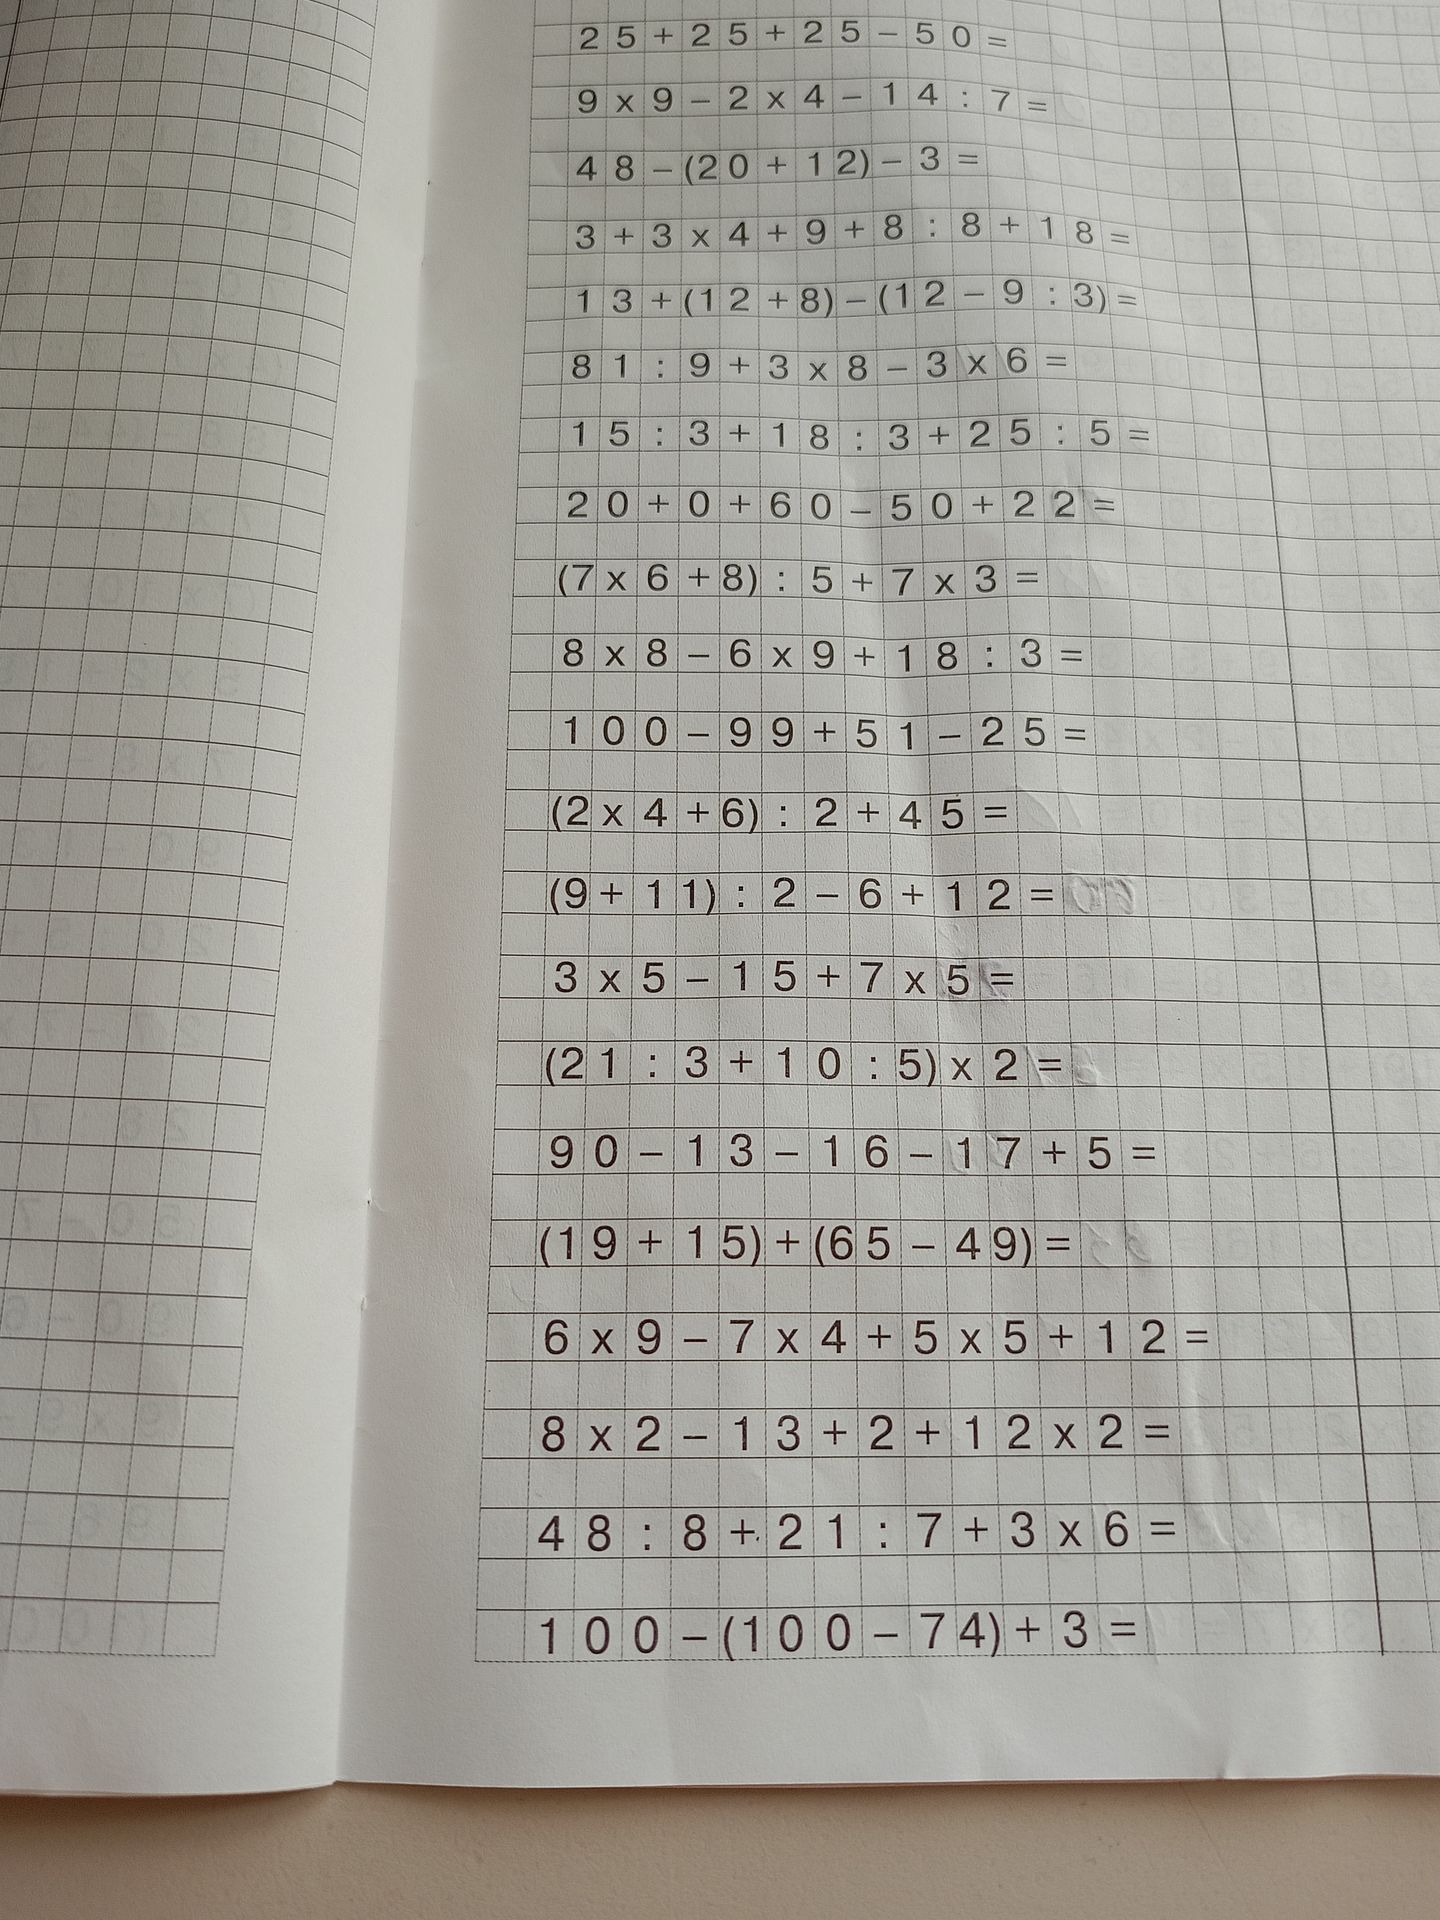 25+25+25-50=
9x9-2x4-14:7=
48-(20+12)-3=
3+3x4+9+8:8+18=
13+(12+8)-(12-9:3)=
81:9+3x8-3x6=
15:3+18:3+25:5=
20+0+60-50+22=
(7x6+8):5+7x3=
8x8-6x9+18:3=
100-99+51-25=
(2x4+6):2+45=
(9+11):2-6+12=
3x5-15+7x5=
(21:3+10:5)x2=
90-13-16-17+5=
(19+15)+(65-49)=
6x9-7x4+5x5+12=
8x2-13+2+12x2=
48:8+21:7+3x6=
100-(100-74)+3=